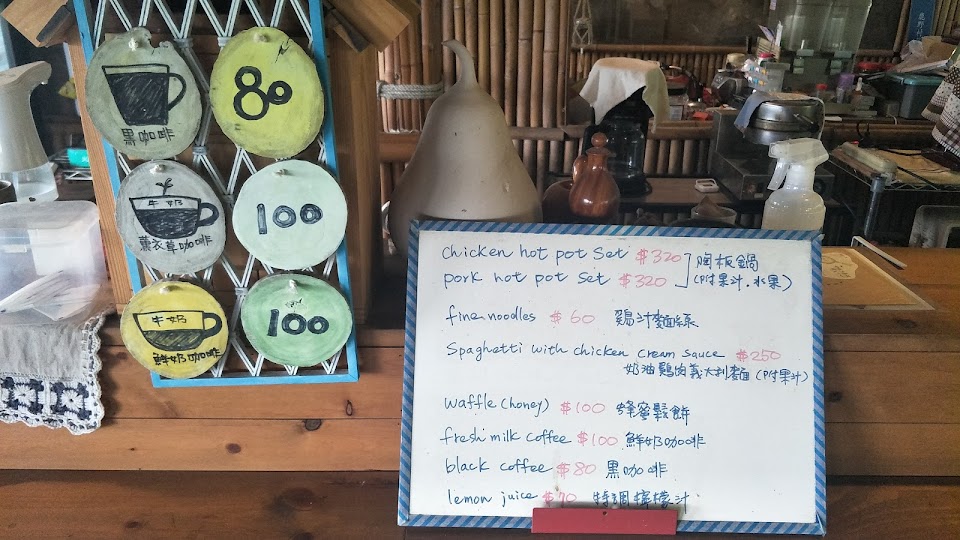 黑咖啡
80
牛奶
薰衣草咖啡
100
牛奶
鮮奶咖啡
100
Chicken hot pot Set $320
pork hot pot Set $320
陶板鍋
(P付果汁.水果)
fine noodles $60 鷄汁麵線
Spaghetti with chicken cream sauce $250
奶油鷄肉義大利麵(P付果汁)
waffle(honey) $100 蜂蜜鬆餅
fresh milk coffee $100 鮮奶咖啡
black coffee $80 黑咖啡
lemon juice $70 特調檸檬汁